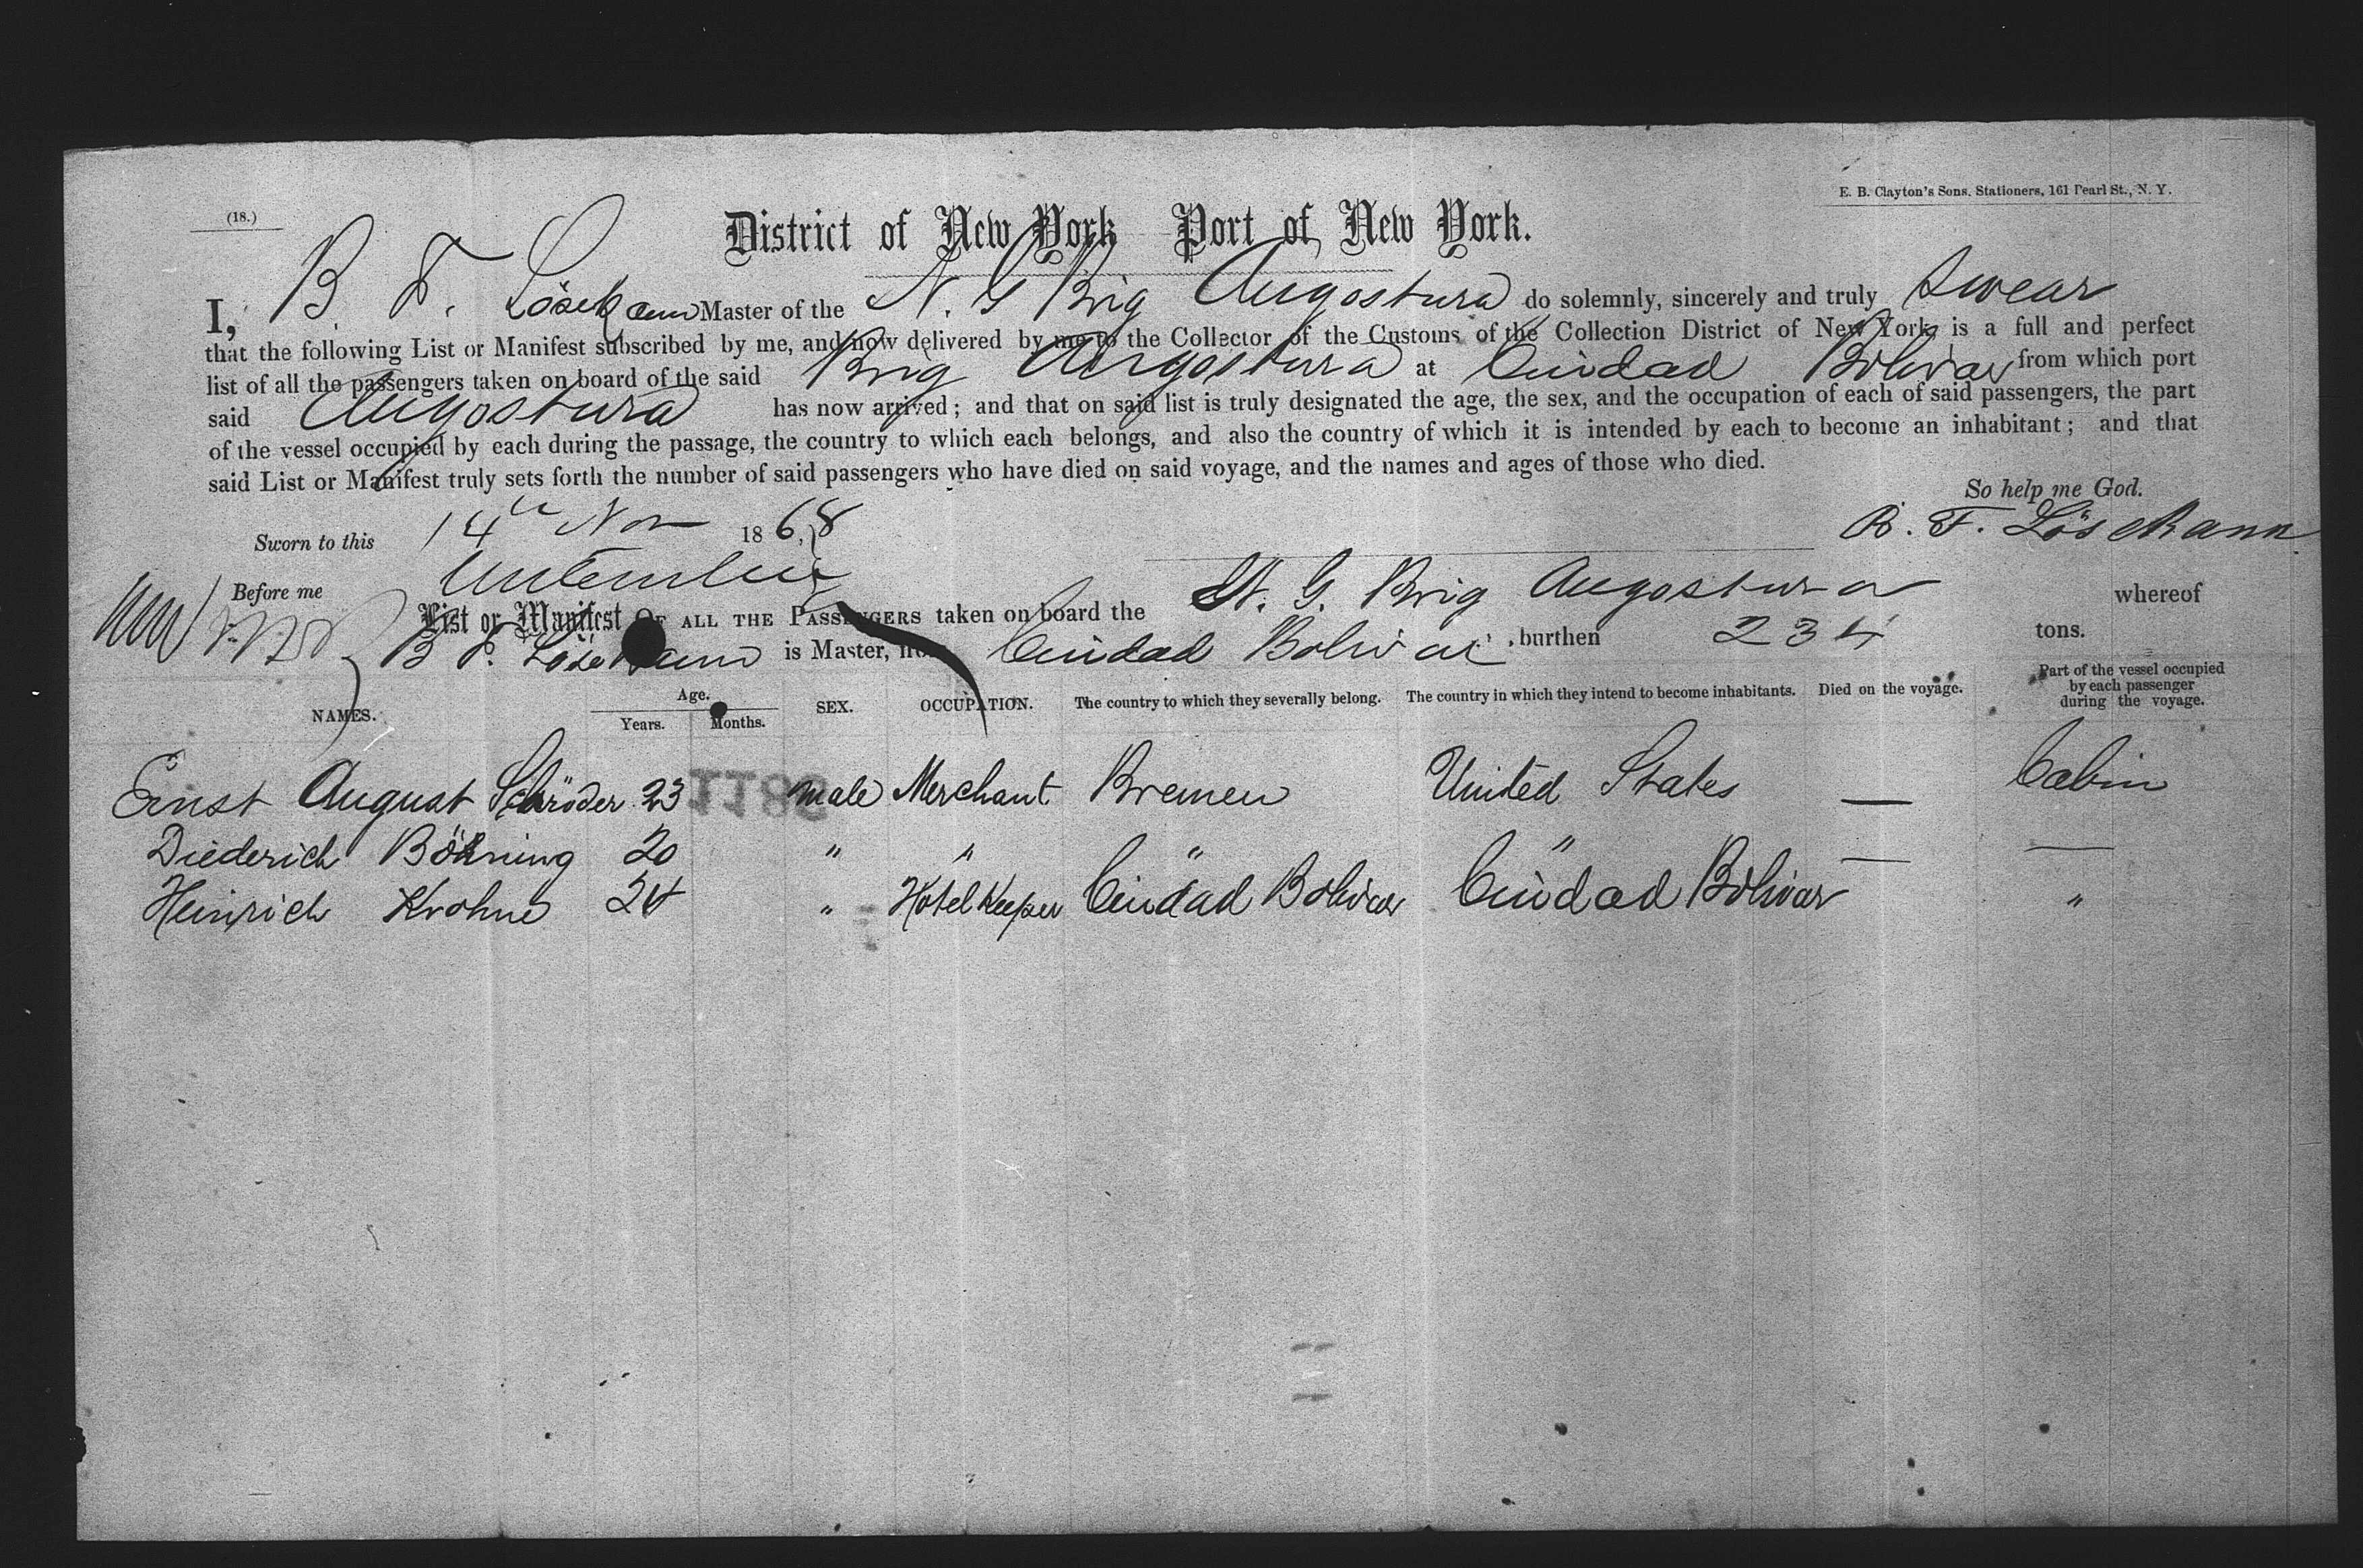 E. B. Clayton's Sons, Stationers, 161 Pearl St., N. Y.
(18.)
District of New York Port of New York.
I, B F. Lösekann Master of the N. G Brig Angostura do solemnly, sincerely and truly swear
that the following List or Manifest subscribed by me, and now delivered by me to the Collector of the Customs of the Collection District of New York, is a full and perfect
list of all the passengers taken on board of the said Brig Angostura at Ciudad Bolivar from which port
said Angostura has now arrived; and that on said list is truly designated the age, the sex, and the occupation of each of said passengers, the part
of the vessel occupied by each during the passage, the country to which each belongs, and also the country of which it is intended by each to become an inhabitant; and that
said List or Manifest truly sets forth the number of said passengers who have died on said voyage, and the names and ages of those who died.
So help me God.
Sworn to this 14th Nov 1868
B. F. Lösekann
Before me
List or Manifest OF ALL THE PASSENGERS taken on board the N. G. Brig Angostura whereof
B F. Lösekann is Master, from Ciudad Bolivar, burthen 234 tons.
NAMES. Age. Years. Months. SEX. OCCUPATION. The country to which they severally belong. The country in which they intend to become inhabitants. Died on the voyage. Part of the vessel occupied by each passenger during the voyage.
Ernst August Schröder 23 male Merchant Bremen United States — Cabin
Diederich Böhning 20 " " " " — —
Heinrich Krohne 24 " Hotel Keeper Ciudad Bolivar Ciudad Bolivar "